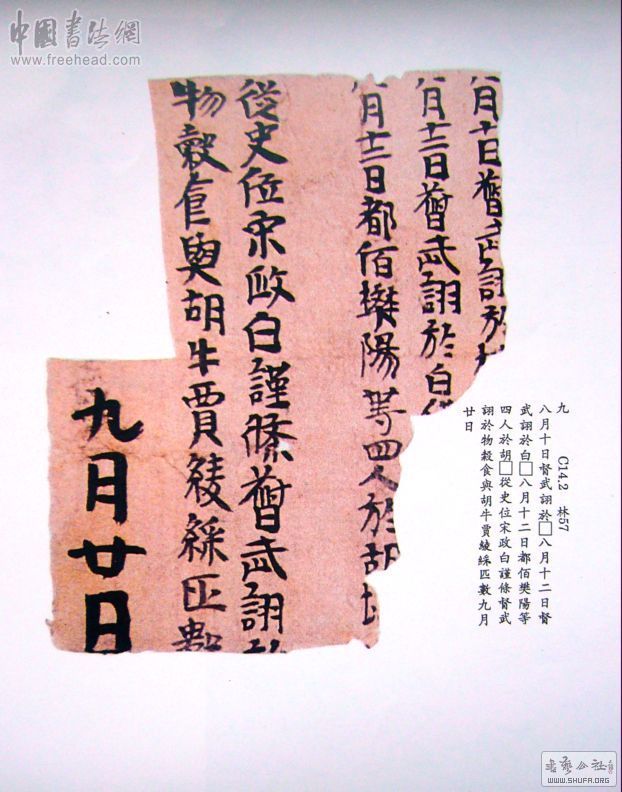 中國書法網
www.freehead.com
八月十日督武詡於
八月十二日督武詡於白
八月十二日都佰樊陽等四人於胡
從史位宋政白謹條督武詡於
物穀食與胡牛賈綾綵匹數
九月廿日
九 C14.2 林57
八月十日督武詡於□八月十二日督
武詡於白□八月十二日都佰樊陽等
四人於胡□從史位宋政白謹條督武
詡於物穀食與胡牛賈綾綵匹數九月
廿日
書藝公社
WWW.SHUFA.ORG